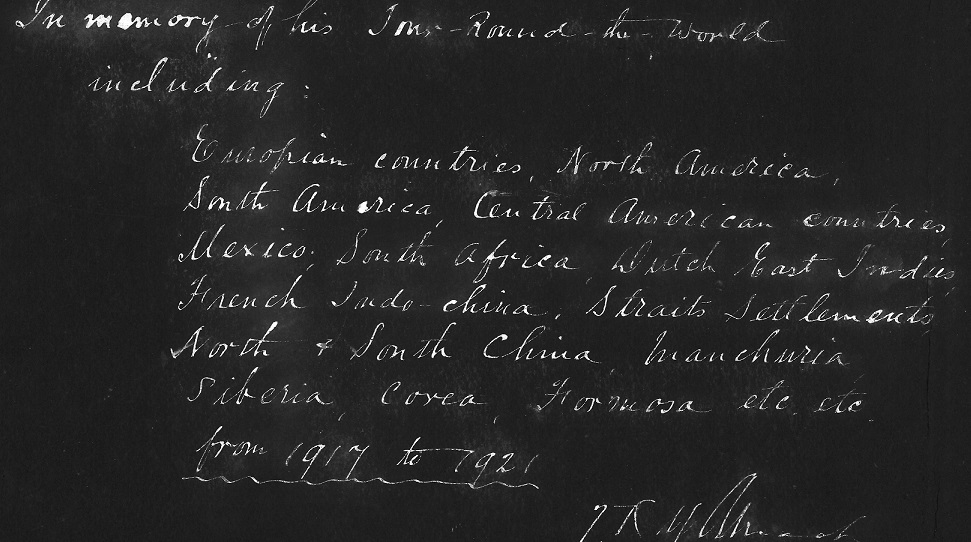 In memory of his Tour-Round-the-World
including:
Europian countries, North America,
South America, Central American countries,
Mexico, South Africa, Dutch East Indies,
French Indo-china, Straits Settlements,
North & South China, Manchuria
Siberia, Corea, Formosa etc. etc
from 1917 to 1921